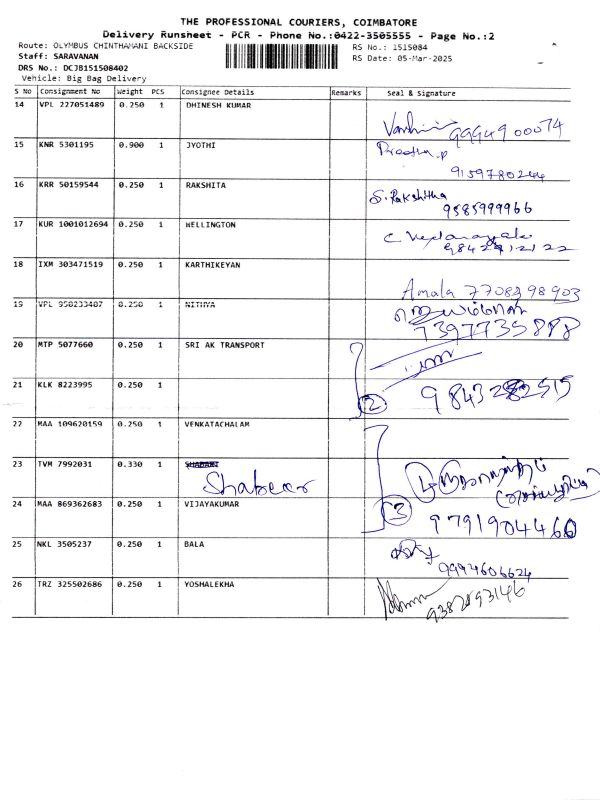 THE PROFESSIONAL COURIERS, COIMBATORE
Delivery Runsheet - PCR - Phone No.:0422-3505555 - Page No.:2
Route: OLYMBUS CHINTHAMANI BACKSIDE RS No.: 1515084
Staff: SARAVANAN RS Date: 05-Mar-2025
DRS No.: DCJB151508402
Vehicle: Big Bag Delivery
S No Consignment No Weight PCS Consignee Details Remarks Seal & Signature
14 VPL 227051489 0.250 1 DHINESH KUMAR
9994900074
15 KNR 5301195 0.900 1 JYOTHI Preetha.p
9159780244
16 KRR 50159544 0.250 1 RAKSHITA S. Rakshitha
9585999966
17 KUR 1001012694 0.250 1 WELLINGTON
18 IXM 303471519 0.250 1 KARTHIKEYAN
Amala 7708298903
19 VPL 950233407 0.250 1 NITHYA
7397735888
20 MTP 5077660 0.250 1 SRI AK TRANSPORT
21 KLK 8223995 0.250 1
2
22 MAA 109620159 0.250 1 VENKATACHALAM
23 TVM 7992031 0.330 1
Shabeer
24 MAA 869362683 0.250 1 VIJAYAKUMAR 3
9791904460
25 NKL 3505237 0.250 1 BALA
9994606624
26 TRZ 325502686 0.250 1 YOSHALEKHA